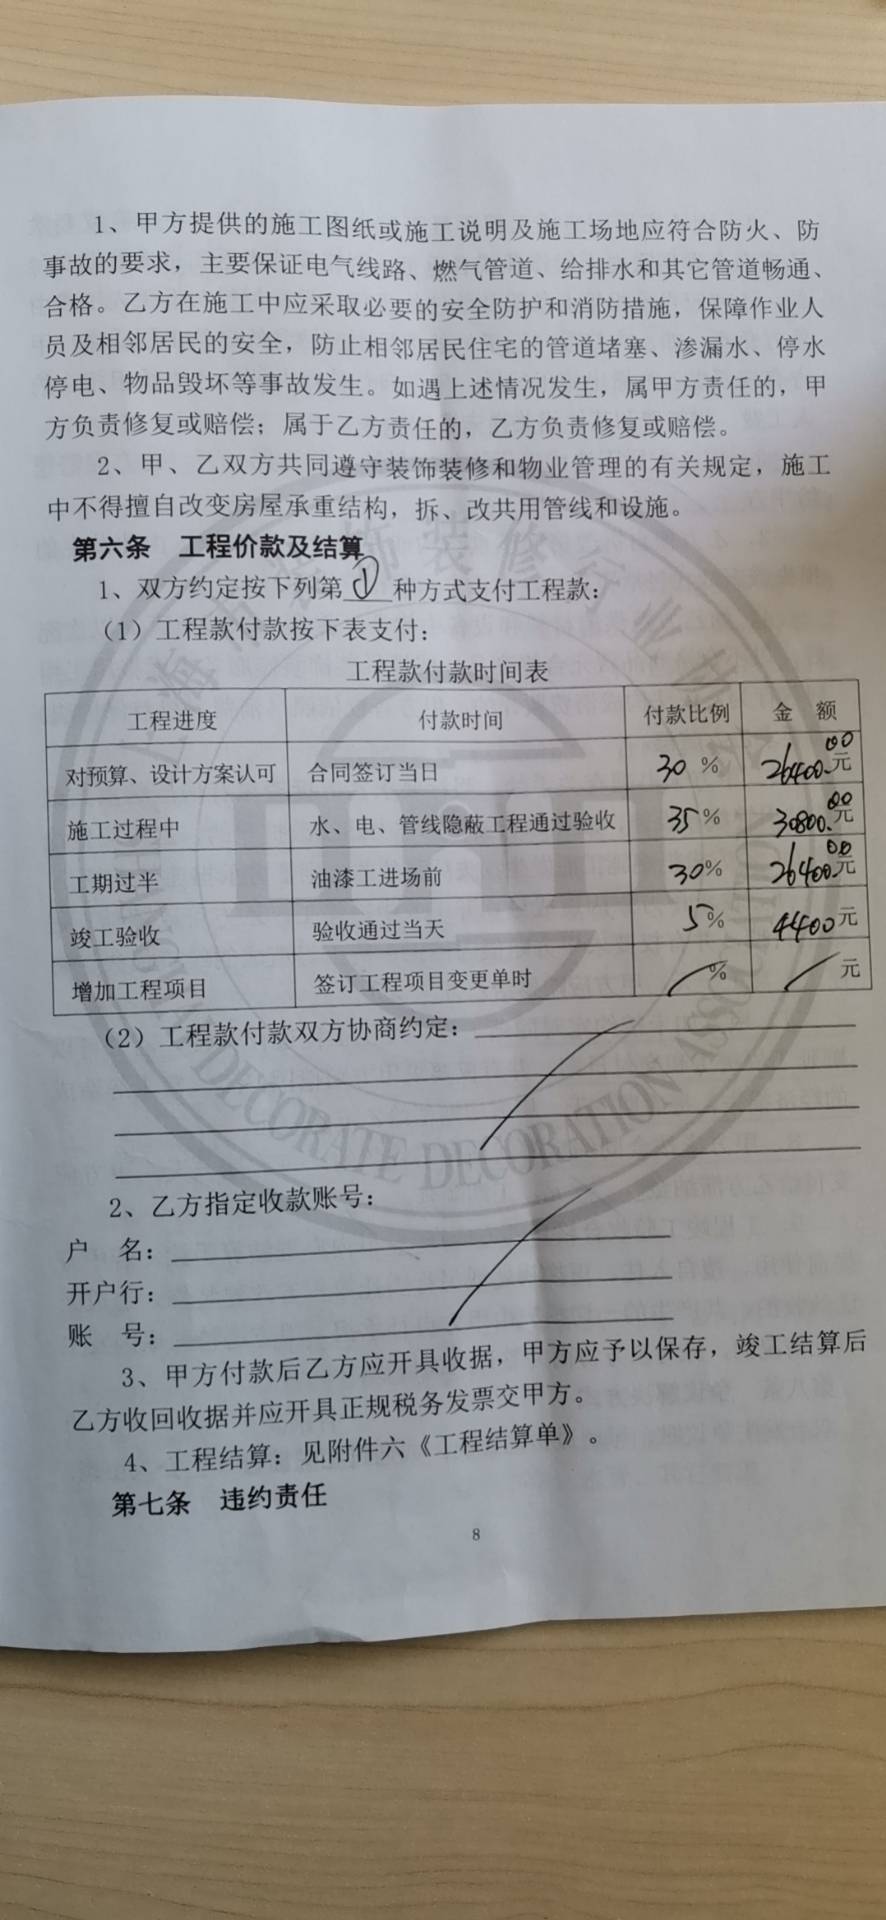 1、甲方提供的施工图纸或施工说明及施工场地应符合防火、防
事故的要求，主要保证电气线路、燃气管道、给排水和其它管道畅通、
合格。乙方在施工中应采取必要的安全防护和消防措施，保障作业人
员及相邻居民的安全，防止相邻居民住宅的管道堵塞、渗漏水、停水
停电、物品毁坏等事故发生。如遇上述情况发生，属甲方责任的，甲
方负责修复或赔偿；属于乙方责任的，乙方负责修复或赔偿。
2、甲、乙双方共同遵守装饰装修和物业管理的有关规定，施工
中不得擅自改变房屋承重结构，拆、改共用管线和设施。
第六条 工程价款及结算
1、双方约定按下列第①种方式支付工程款：
（1）工程款付款按下表支付：
工程款付款时间表
工程进度 付款时间 付款比例 金 额
对预算、设计方案认可 合同签订当日 30 % 26400.00元
施工过程中 水、电、管线隐蔽工程通过验收 35 % 30800.00元
工期过半 油漆工进场前 30% 26400.00元
竣工验收 验收通过当天 5% 4400元
增加工程项目 签订工程项目变更单时 % 元
（2）工程款付款双方协商约定：
2、乙方指定收款账号：
户 名：
开户行：
账 号：
3、甲方付款后乙方应开具收据，甲方应予以保存，竣工结算后
乙方收回收据并应开具正规税务发票交甲方。
4、工程结算：见附件六《工程结算单》。
第七条 违约责任
8